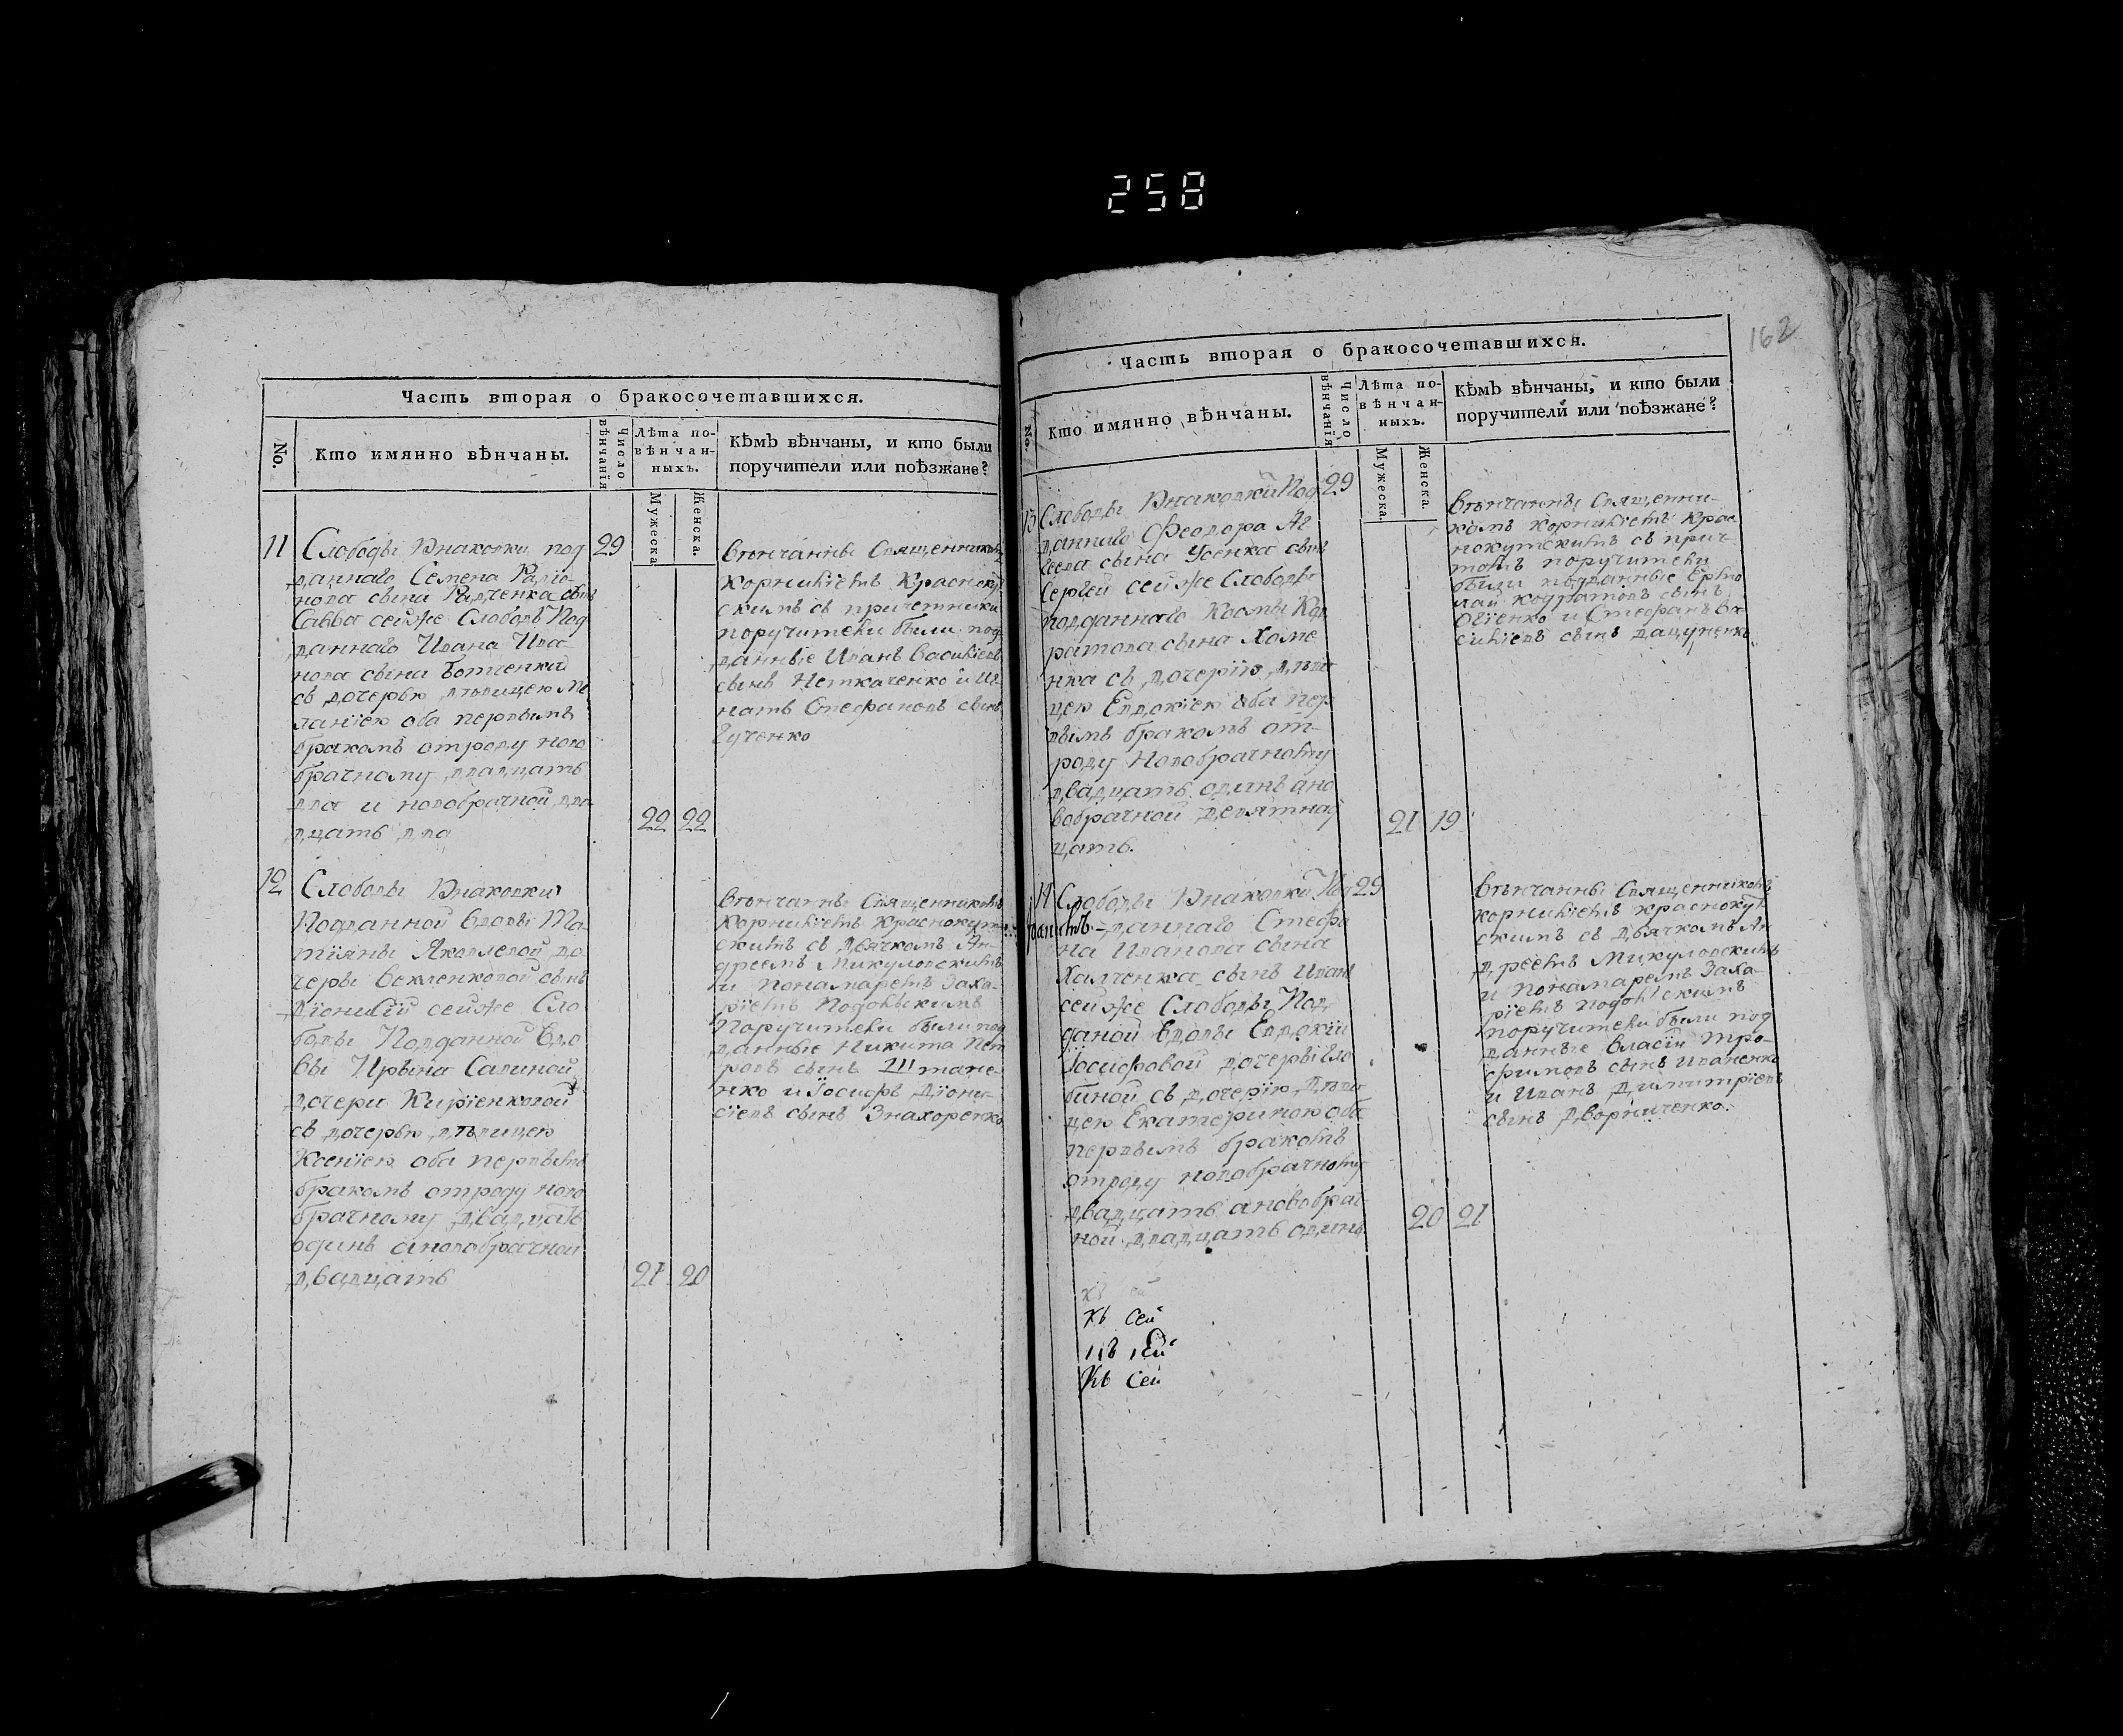 258
Часть вторая о бракосочетавшихся.
No.
Кто имянно вѣнчаны.
Число вѣнчанія
Лѣта повѣнчанныхъ.
Мужеска
Женска.
Кѣмъ вѣнчаны, и кто были
поручители или поѣзжане?
11 Слободы Внаковки под 29
даннаго Семена Радіо-
нова сына Радченка сынъ
Савва сейже Слободы Под
даннаго Ивана Ива-
нова сына
съ дочерью дѣвицею Ме
ланіею оба первымъ
бракомъ отроду ново
брачному двадцать
два и новобрачной два
дцать два 22 22
Вѣнчанны Священникомъ
Корниліемъ Краснокут
скимъ съ причетники
поручители были под
данные Иванъ Василіевъ
сынъ Неткаченко и Иг
натъ Стефановъ сынъ
Гученко
12 Слободы Внаковки
Подданной Вдовы Та-
тіяны Яковлевой до
черы сынъ
Діонисій сейже Сло
боды Подданной Вдо
вы Савиной
дочери Киріенковой
съ дочерью дѣвицею
Ксеніею оба первымъ
бракомъ отроду ново
брачному двадцать
одинъ а новобрачной
двадцать 21 20
Вѣнчанны Священникомъ
Корниліемъ Краснокут
скимъ съ дьячкомъ Ан-
дреемъ Микуловскимъ
и понамаремъ Заха-
ріемъ
Поручители были под
данные Никита Пет
ровъ сынъ Штане-
нко и Іосифъ Діони-
сіевъ сынъ Знахоренко
162
Часть вторая о бракосочетавшихся.
No.
Кто имянно вѣнчаны.
Число вѣнчанія
Лѣта повѣнчанныхъ.
Мужеска.
Женска.
Кѣмъ вѣнчаны, и кто были
поручители или поѣзжане?
13 Слободы Внаковки Под 29
даннаго Феодора Ал
сынa Усенка сынъ
Сергей сейже Слободы
подданнаго Космы Кон
ратова сына Хоме
нка съ дочерію дѣви
цею Евдокіею оба пер
вымъ бракомъ от-
роду Новобрачному
двадцать одинъ ано
вобрачной девятнад
цать. 21 19
Вѣнчанны Священни-
комъ Корниліемъ Крас
нокутскимъ съ прич-
томъ поручители
были подданные Ермо
лай Кодратовъ сынъ
и Стефанъ Ва
силіевъ сынъ Дацуненко
14 Слободы Внаковки Под 29
даннаго Стефа
на Иванова сына
Халченка сынъ Иванъ
сейже Слободы Под
даной Вдовы Евдокіи
Іосифовой дочеры
съ дочерію дѣви
цею Екатериною оба
первымъ бракомъ
отроду новобрачному
двадцать а новобрач
ной двадцать одинъ 20 21
Вѣнчанны Священникомъ
Корниліемъ Краснокут
скимъ съ дьячкомъ Ан
дреемъ Микуловскимъ
и понамаремъ Заха-
ріемъ
поручители были под
данные Власій Тро-
фимовъ сынъ Иваненко
и Иванъ Димитріевъ
сынъ Дворниченко.
Къ сей
Къ сей